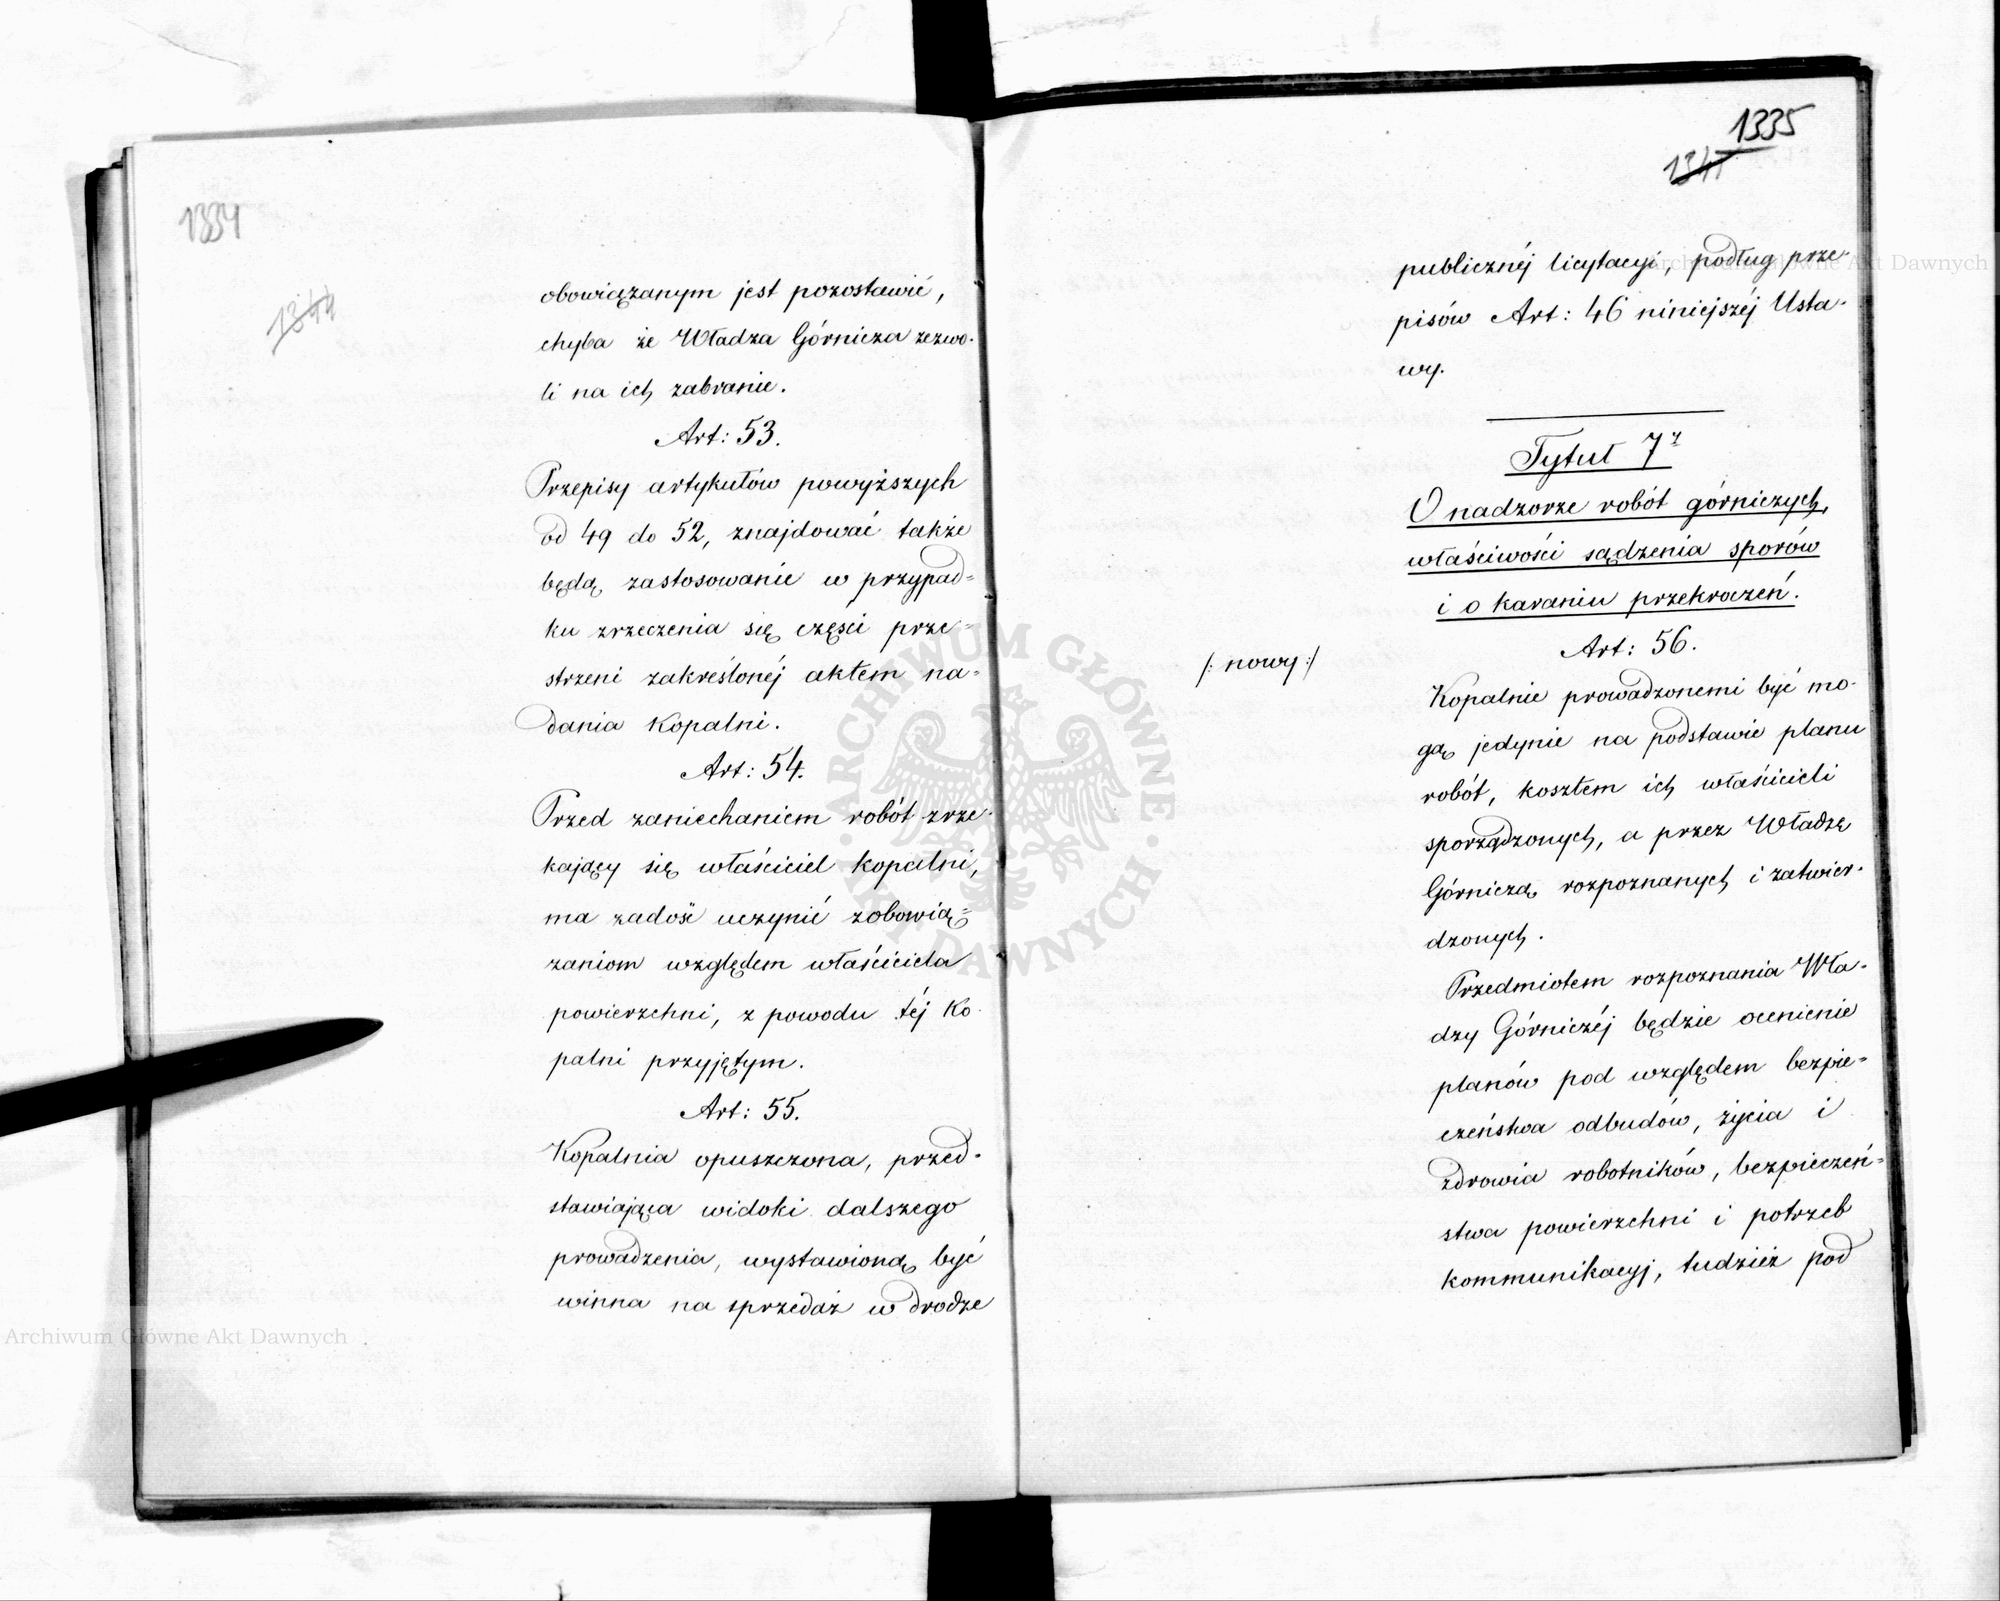 1334
1344
obowiązanym jest pozostawić,
chyba że Władza Górnicza zezwo-
li na ich zabranie.
Art: 53.
Przepisy artykułów powyższych
od 49 do 52, znajdować także
będą zastosowanie w przypad=
ku zrzeczenia się części prze=
strzeni zakreślonéj aktem na=
dania Kopalni.
Art: 54.
Przed zaniechaniem robót zrze-
kający się właściciel kopalni,
ma zadość uczynić zobowią=
zaniom względem właściciela
powierzchni, z powodu téj Ko-
palni przyjętym.
Art: 55.
Kopalnia opuszczona, przed-
stawiająca widoki dalszego
prowadzenia, wystawioną być
winna na sprzedaż w drodze
1335
publicznéj licytacyi, podług prze-
pisów Art: 46 niniejszéj Usta-
wy.
Tytuł 7y
O nadzorze robót górniczych,
właściwości sądzenia sporów
i o karaniu przekroczeń.
Art: 56.
/: nowy :/
Kopalnie prowadzonemi być mo-
gą jedynie na podstawie planu
robót, kosztem ich właścicieli
sporządzonych, a przez Władzę
Górniczą rozpoznanych i zatwier-
dzonych.
Przedmiotem rozpoznania Wła-
dzy Górniczéj będzie ocenienie
planów pod względem bezpie=
czeństwa odbudów, życia i
zdrowia robotników, bezpieczeń=
stwa powierzchni i potrzeb
kommunikacyj, tudzież pod
ARCHIWUM GŁÓWNE
AKT DAWNYCH
Archiwum Główne Akt Dawnych
Archiwum Główne Akt Dawnych